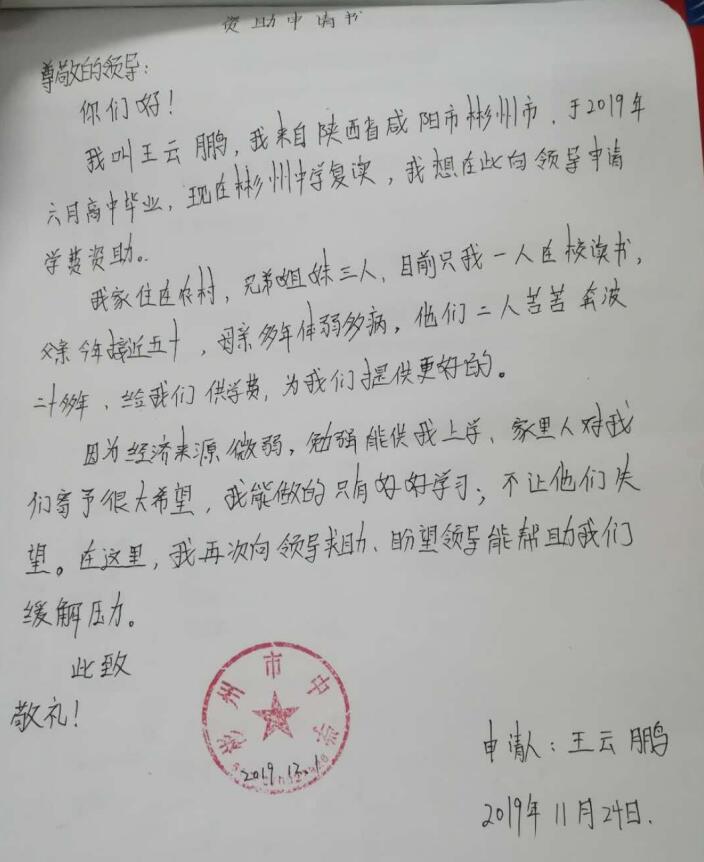 资助申请书
尊敬的领导：
你们好！
我叫王云鹏，我来自陕西省咸阳市彬州市，于2019年
六月高中毕业，现在彬州中学复读，我想在此向领导申请
学费资助。
我家住在农村，兄弟姐妹三人，目前只我一人在校读书，
父亲今年接近五十，母亲多年体弱多病，他们二人苦苦奔波
二十多年，给我们供学费，为我们提供更好的。
因为经济来源微弱，勉强能供我上学、家里人对我
们寄予很大希望，我能做的只有好好学习；不让他们失
望。在这里，我再次向领导求助、盼望领导能帮助我们
缓解压力。
此致
敬礼！
彬州市中学
2019.12.1
申请人：王云鹏
2019年11月24日.